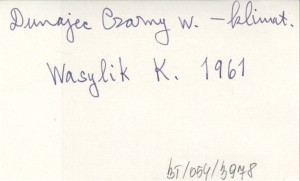 Dunajec Czarny w. – klimat.
Wasylik K. 1961
BT/054/3978